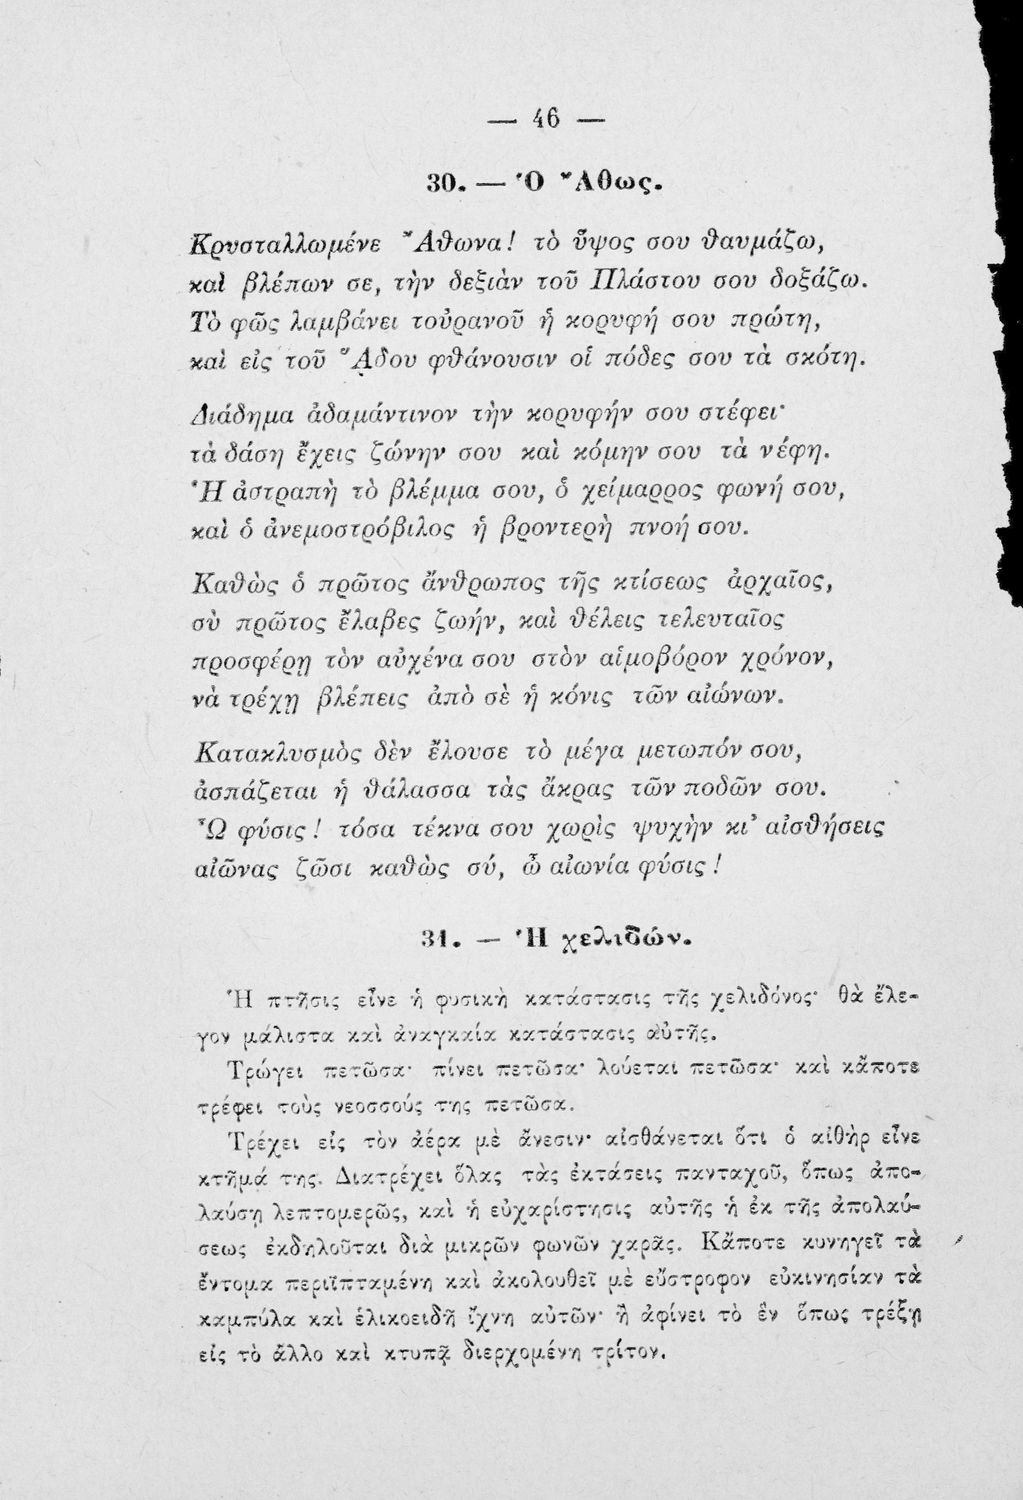 — 46 —
30. — Ὁ Ἄθως.
Κρυσταλλωμένε Ἄθωνα! τὸ ὕψος σου θαυμάζω,
καὶ βλέπων σε, τὴν δεξιὰν τοῦ Πλάστου σου δοξάζω.
Τὸ φῶς λαμβάνει τοὐρανοῦ ἡ κορυφή σου πρώτη,
καὶ εἰς τοῦ ᾍδου φθάνουσιν οἱ πόδες σου τὰ σκότη.
Διάδημα ἀδαμάντινον τὴν κορυφήν σου στέφει·
τὰ δάση ἔχεις ζώνην σου καὶ κόμην σου τὰ νέφη.
Ἡ ἀστραπὴ τὸ βλέμμα σου, ὁ χείμαρρος φωνή σου,
καὶ ὁ ἀνεμοστρόβιλος ἡ βροντερὴ πνοή σου.
Καθὼς ὁ πρῶτος ἄνθρωπος τῆς κτίσεως ἀρχαῖος,
σὺ πρῶτος ἔλαβες ζωήν, καὶ θέλεις τελευταῖος
προσφέρῃ τὸν αὐχένα σου στὸν αἱμοβόρον χρόνον,
νὰ τρέχῃ βλέπεις ἀπὸ σὲ ἡ κόνις τῶν αἰώνων.
Κατακλυσμὸς δὲν ἔλουσε τὸ μέγα μετωπόν σου,
ἀσπάζεται ἡ θάλασσα τὰς ἄκρας τῶν ποδῶν σου.
Ὦ φύσις! τόσα τέκνα σου χωρὶς ψυχὴν κι’ αἰσθήσεις
αἰῶνας ζῶσι καθὼς σύ, ὦ αἰωνία φύσις!
31. — Ἡ χελιδών.
Ἡ πτῆσις εἶνε ἡ φυσικὴ κατάστασις τῆς χελιδόνος· θὰ ἔλε-
γον μάλιστα καὶ ἀναγκαία κατάστασις αὐτῆς.
Τρώγει πετῶσα· πίνει πετῶσα· λούεται πετῶσα· καὶ κἄποτε
τρέφει τοὺς νεοσσούς της πετῶσα.
Τρέχει εἰς τὸν ἀέρα μὲ ἄνεσιν· αἰσθάνεται ὅτι ὁ αἰθὴρ εἶνε
κτῆμά της. Διατρέχει ὅλας τὰς ἐκτάσεις πανταχοῦ, ὅπως ἀπο-
λαύσῃ λεπτομερῶς, καὶ ἡ εὐχαρίστησις αὐτῆς ἡ ἐκ τῆς ἀπολαύ-
σεως ἐκδηλοῦται διὰ μικρῶν φωνῶν χαρᾶς. Κἄποτε κυνηγεῖ τὰ
ἔντομα περιϊπταμένη καὶ ἀκολουθεῖ μὲ εὔστροφον εὐκινησίαν τὰ
καμπύλα καὶ ἑλικοειδῆ ἴχνη αὐτῶν· ἢ ἀφίνει τὸ ἓν ὅπως τρέξῃ
εἰς τὸ ἄλλο καὶ κτυπᾷ διερχομένη τρίτον.